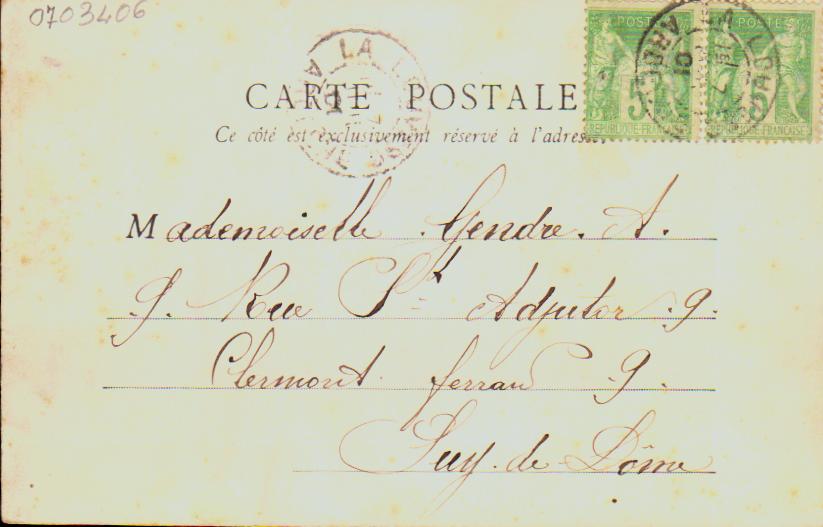 0703406
CARTE POSTALE
Ce côté est exclusivement réservé à l'adresse.
POSTE
5
REPUBLIQUE FRANÇAISE
POSTE
5
REPUBLIQUE FRANÇAISE
LA
LA
01
Mademoiselle Gendre. A.
9. Rue St Adjutor. 9.
Clermont ferrand 9.
Puy. de Dôme